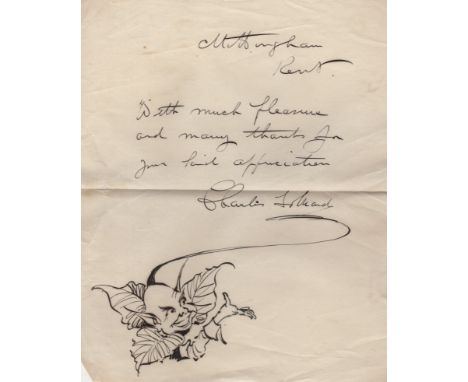 Mottingham
Kent.
With much pleasure
and many thanks for
your kind appreciation
Charles